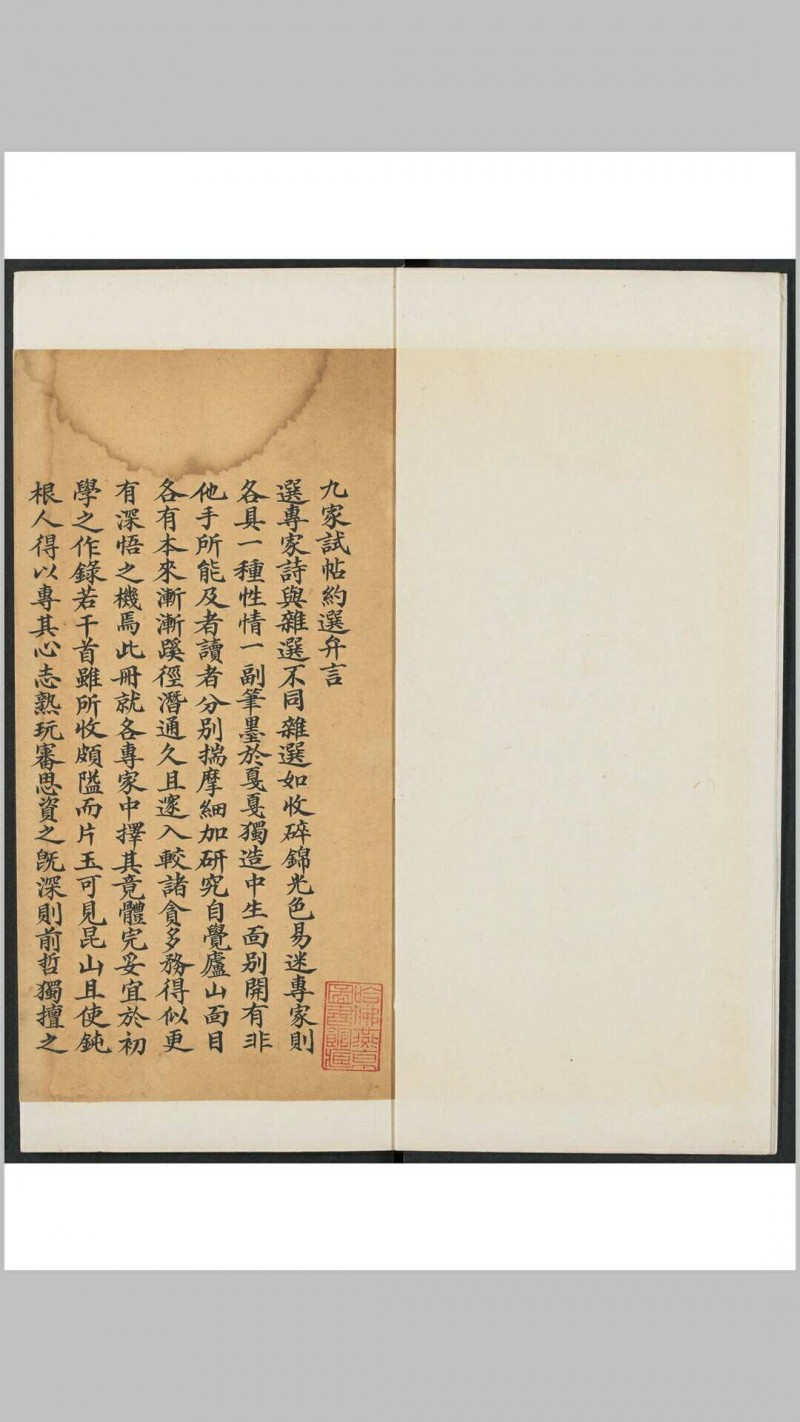 九家試帖約選弁言
選專家詩與雜選不同雜選如收碎錦光色易迷專家則
各具一種性情一副筆墨於戛戛獨造中生面別開有非
他手所能及者讀者分別揣摩細加研究自覺廬山面目
各有本來漸漸蹊徑潛通久且邃入較諸貪多務得似更
有深悟之機焉此冊就各專家中擇其竟體完妥宜於初
學之作錄若干首雖所收頗隘而片玉可見昆山且使鈍
根人得以專其心志熟玩審思資之旣深則前哲獨擅之
哈佛燕京
圖書館藏